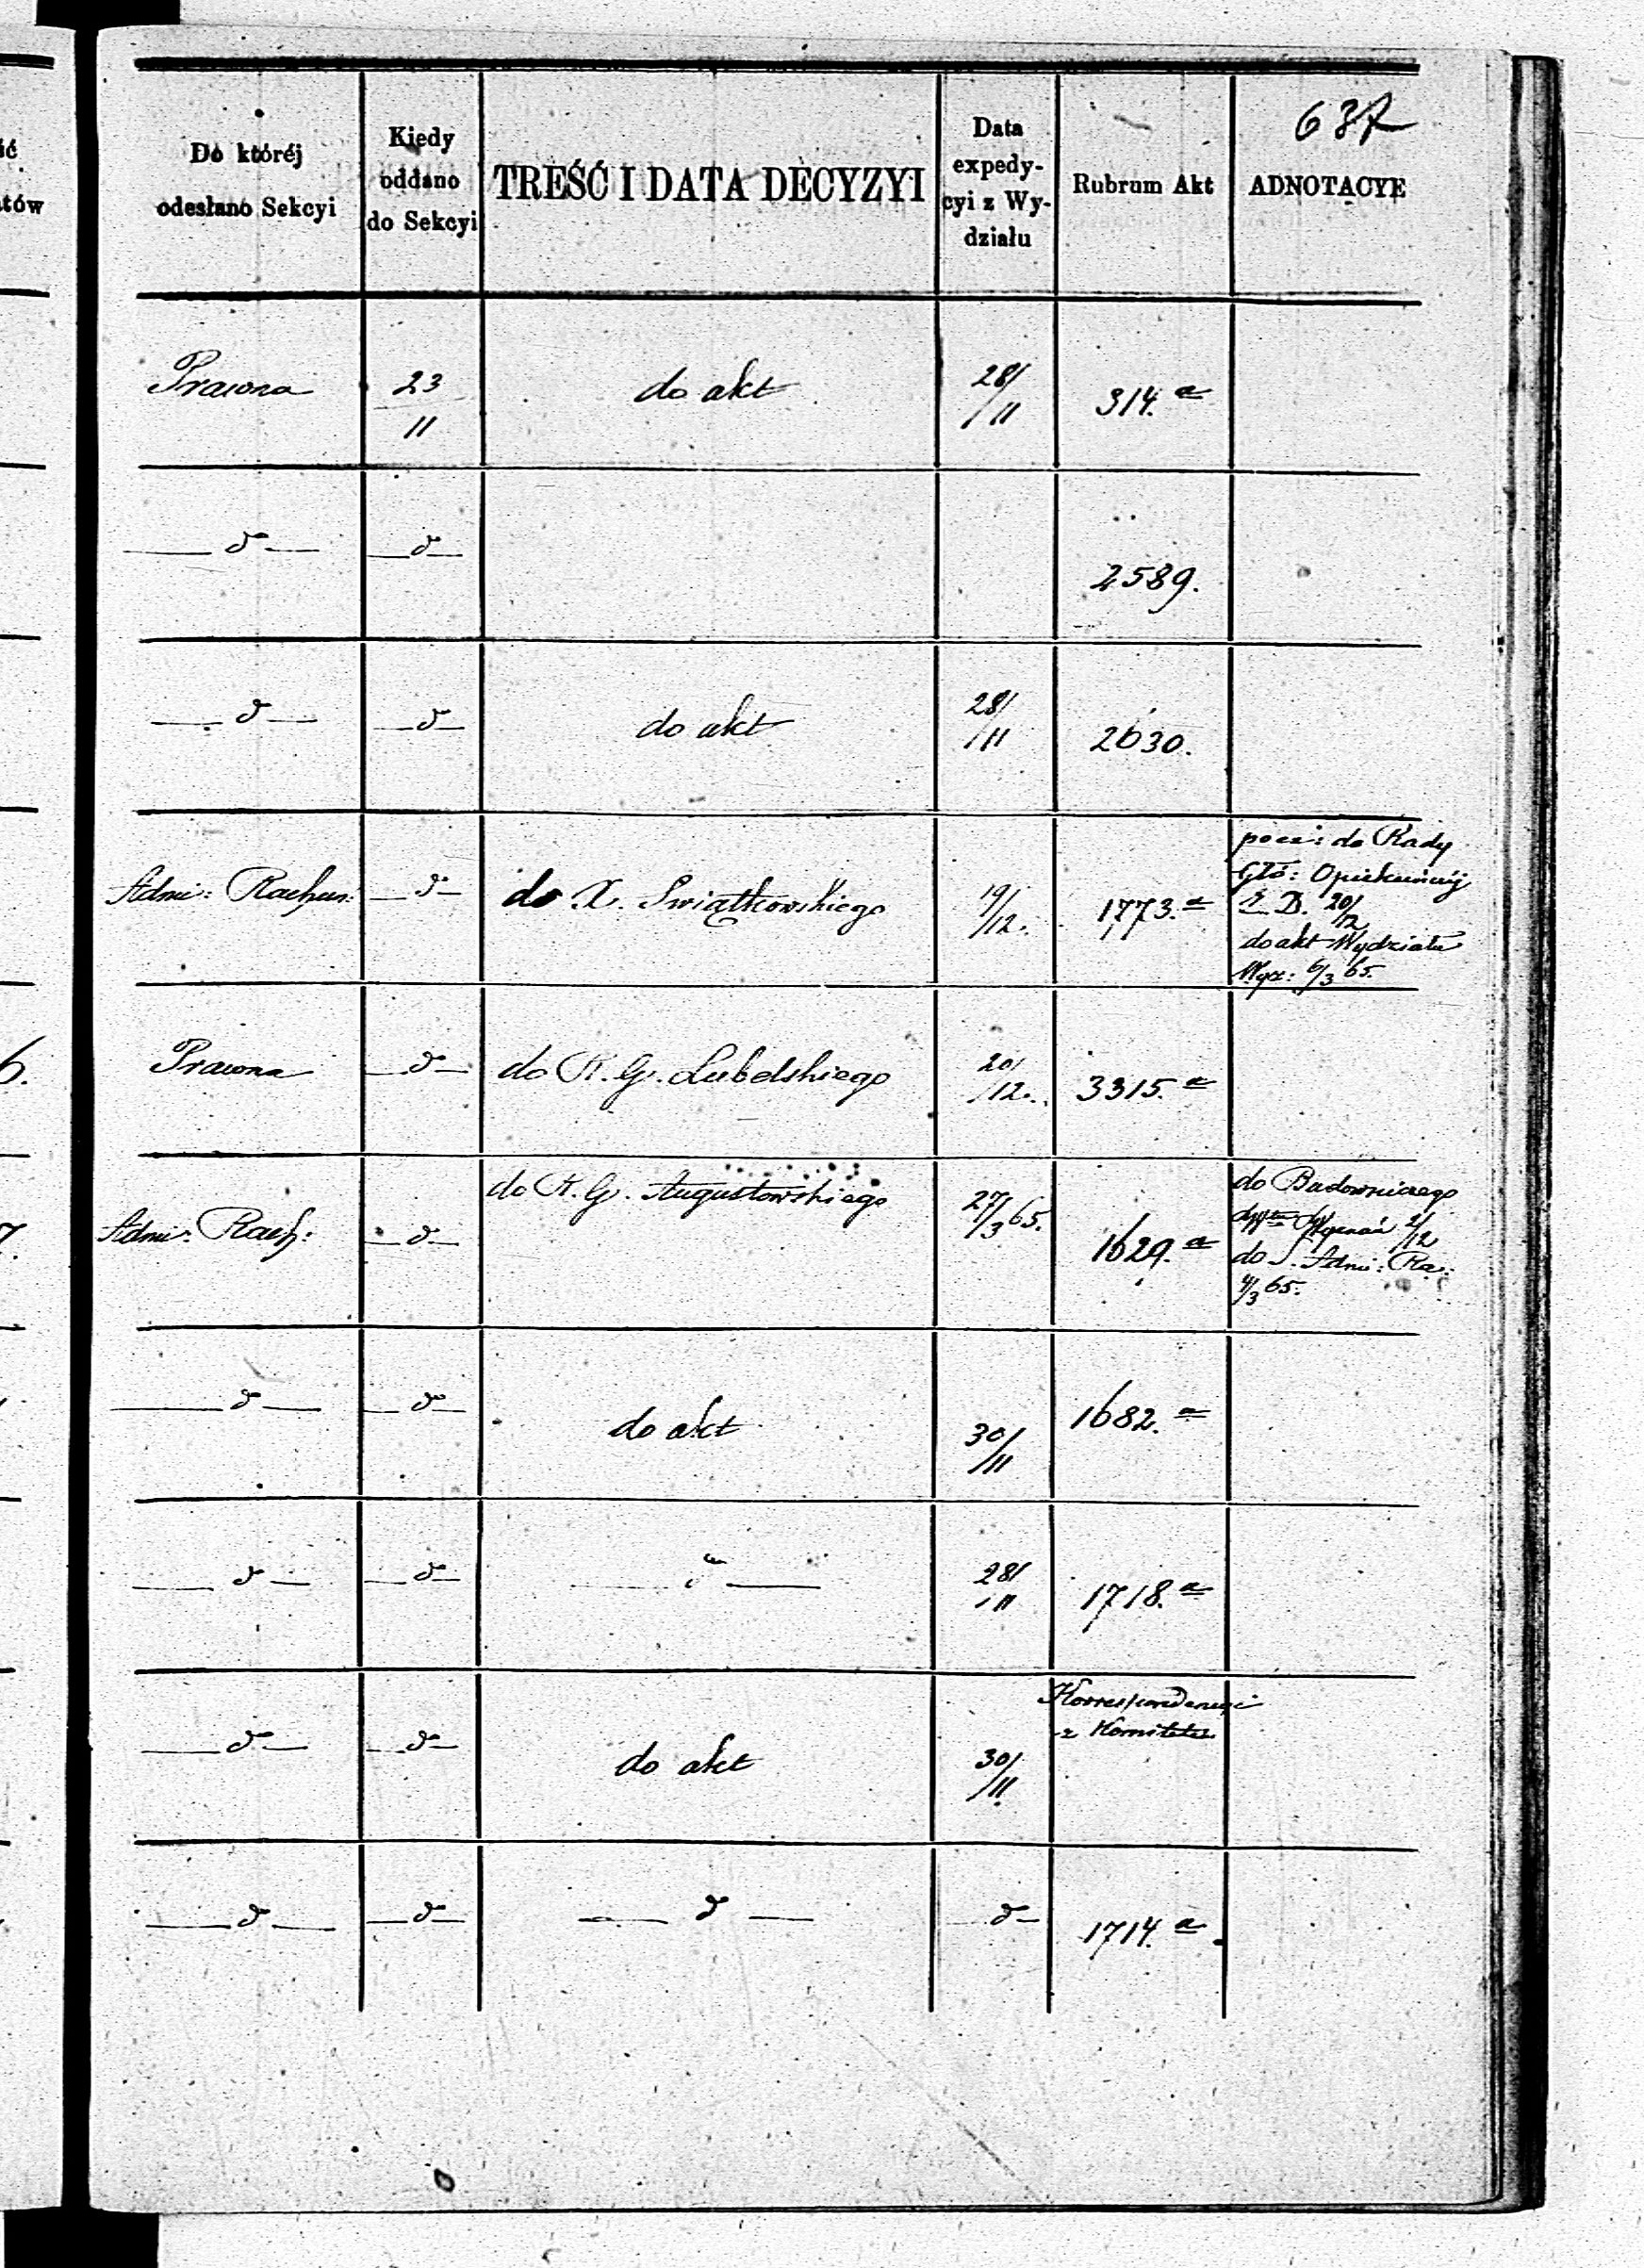 637
ść
Do któréj
odesłano Sekcyi
Kiedy
oddano
do Sekcyi
TREŚĆ I DATA DECYZYI
Data
expedy-
cyi z Wy-
działu
Rubrum Akt
ADNOTACYE
tów
Prawna 23/11 do akt 28/11 314.a
do do 2589.
do do do akt 28/11 2630.
Admi: Rachun: do do X. Swiątkowskiego 19/12. 1773.a
pocz: do Rady
Głó: Opiekuńczéj
Z. D. 20/12
do akt Wydziału
Wyz: 6/3 65.
6. Prawna do do R. G. Lubelskiego 20/12. 3315.a
7. Admi: Rach: do do R. G. Augustowskiego 27/3 65. 1629.a
do Budowniczego
2/12
do S. Admi: Ra:
4/3 65.
do do do akt 30/11 1682.a
do do " 28/11 1718.a
do do do akt 30/11. Korrespondencyi
z Komitetu
do do do do 1714.a